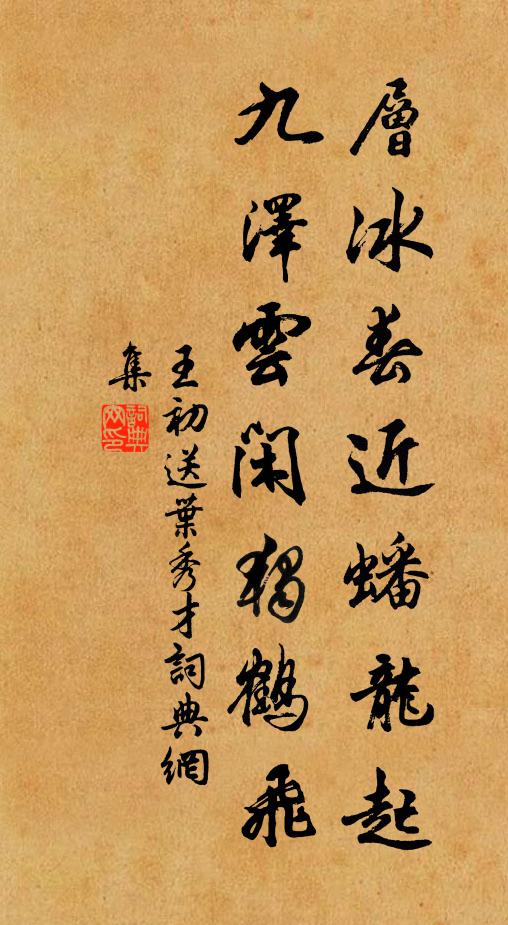 層冰春近蟠龍起
九澤雲閑獨鶴飛
王初送葉秀才詞典網
集
詞典
网印